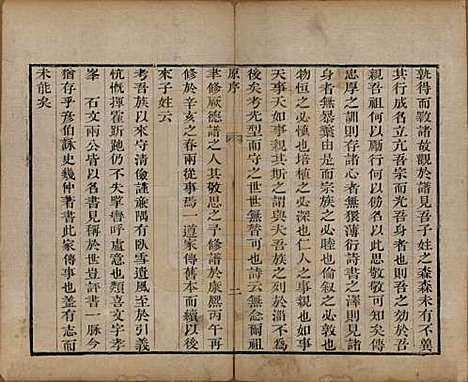 孰得而斁諸故觀於譜見吾子姓之森森未有不冀
其行成名立亢吾宗者未有不思吾身之所以善於
親吾祖何以流慶於此思敬敬可知矣傳
忠厚之訓則存諸心者無猥薄衍詩書之澤則見諸
身者無暴棄由是而宗族之必睦也人倫之必敦也
物恒之必慎也根植之必深也仁人之事親也如事
天事天如事親其斯之謂與夫吾族之列於淄不為
後矣考先型而守之世世無替可也詩云無念爾祖
聿修厥德譜之人其敬思之予修譜於康熙丙午再
原序
二
修於辛亥之春兩從事焉一道家傳舊本而續以後
來子姓云
考吾族以來守清儉謹廉隅有臥雪遺風至於引義
忼慨揮霍斯跑仍不失擊磨呼盧意也類喜文字孝
峯 石文兩公皆以名書見稱於世豈評書一脉今
猶存乎彥伯詠史幾仲著書此家傳事也並有志而
未能矣